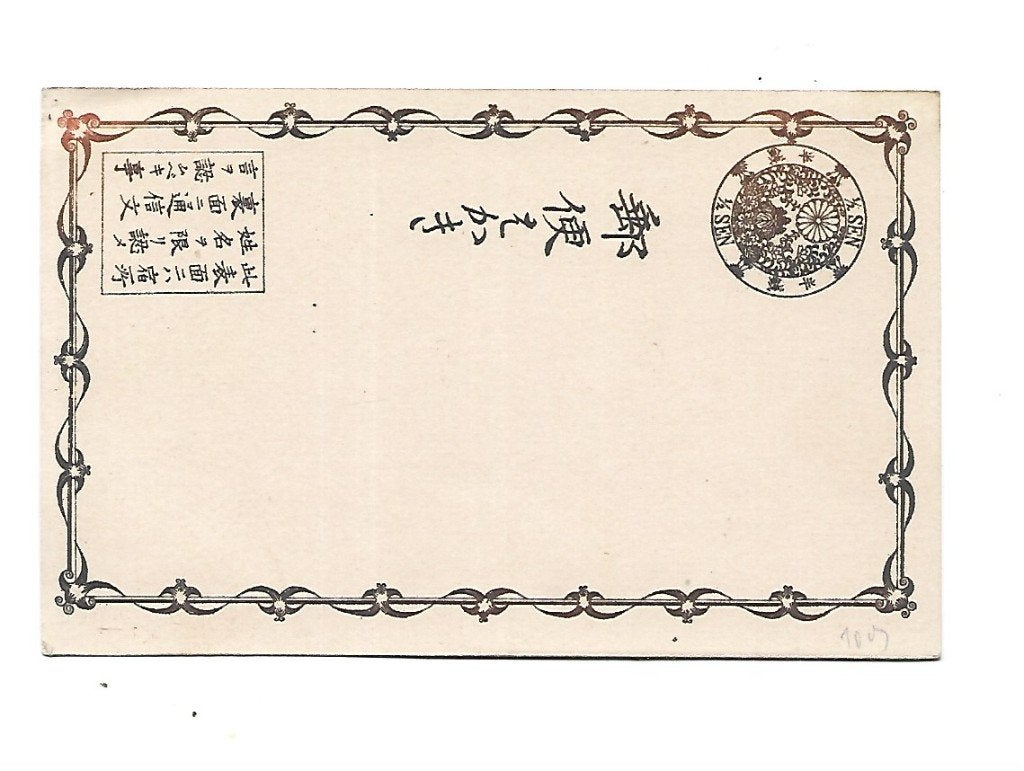 郵便はかき
半錢
½ SEN
半錢
½ SEN
此表面ニハ宿所
姓名ヲ限リ認メ
裏面ニ通信文
言ヲ認ムベキ事